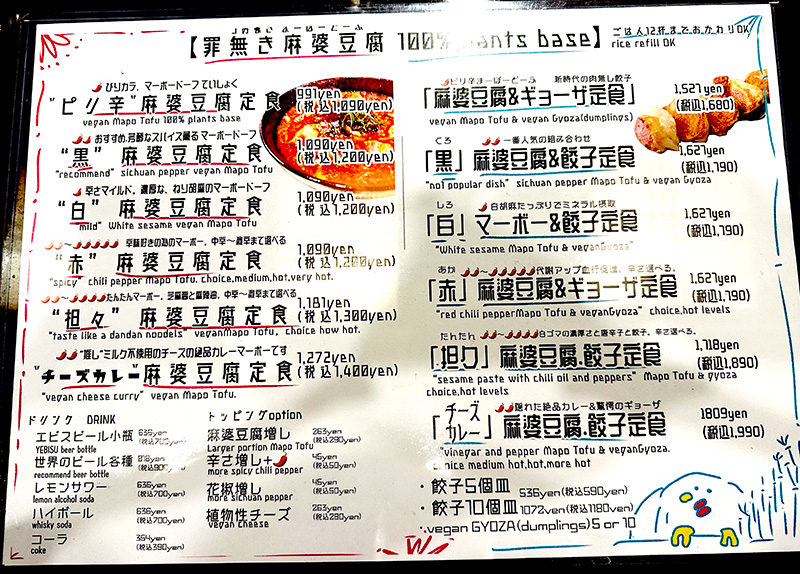 【罪無き麻婆豆腐 100% plants base】
ごはん12杯までおかわりOK
rice refill OK
ぴりカラ、マーボードーフていしょく
"ピリ辛"麻婆豆腐定食
991yen
(税込1,090yen)
vegan Mapo Tofu 100% plants base
おすすめ、芳醇なスパイス薫る マーボードーフ
"黒" 麻婆豆腐定食
1,090yen
(税込1,200yen)
"recommend" sichuan pepper vegan Mapo Tofu
辛さマイルド、濃厚な、ねり胡麻のマーボードーフ
"白" 麻婆豆腐定食
1,090yen
(税込1,200yen)
"mild" White sesame vegan Mapo Tofu
辛味好きの為のマーボー、中辛〜激辛まで選べる
"赤" 麻婆豆腐定食
1,090yen
(税込1,200yen)
"spicy" chili pepper Mapo Tofu. choice,medium,hot,very hot.
たんたんマーボー、芝麻醤と麻辣油、中辛〜激辛まで選べる
"担々" 麻婆豆腐定食
1,181yen
(税込1,300yen)
"taste like a dandan noodels" veganMapo Tofu, choice how hot.
"嬉し"ミルク不使用のチーズの絶品カレーマーボーです
"チーズカレー"麻婆豆腐定食
1,272yen
(税込1,400yen)
"vegan cheese curry" vegan Mapo Tofu.
ドリンク DRINK
エビスビール小瓶 636yen
(税込700yen)
YEBISU beer bottle
世界のビール各種 818yen
(税込900yen)
recommend beer bottle
レモンサワー 636yen
(税込700yen)
lemon alcohol soda
ハイボール 636yen
(税込700yen)
whisky soda
コーラ 354yen
(税込390yen)
coke
トッピングoption
麻婆豆腐増し 263yen
(税込290yen)
Larger portion Mapo Tofu
辛さ増し+ 45yen
(税込50yen)
more spicy chili pepper
花椒増し 45yen
(税込50yen)
more sichuan pepper
植物性チーズ 263yen
(税込290yen)
vegan cheese
ピリ辛まーぼーどーふ 新時代の肉無し餃子
「麻婆豆腐&ギョーザ定食」
1,527yen
(税込1,680)
vegan Mapo Tofu & vegan Gyoza(dumplings)
くろ 一番人気の組み合わせ
「黒」麻婆豆腐&餃子定食
1,627yen
(税込1,790)
"no1 popular dish" sichuan pepper Mapo Tofu & vegan Gyoza
しろ 白胡麻たっぷりでミネラル摂取
「白」マーボー&餃子定食
1,627yen
(税込1,790)
"White sesame Mapo Tofu & veganGyoza"
あか 〜 代謝アップ血行促進、辛さ選べる。
「赤」麻婆豆腐&ギョーザ定食
1,627yen
(税込1,790)
"red chili pepperMapo Tofu & veganGyoza" choice,hot levels
たんたん 〜 白ゴマの濃厚さと唐辛子と餃子。辛さ選べる。
「担々」麻婆豆腐.餃子定食
1,718yen
(税込1,890)
"sesame paste with chili oil and peppers" Mapo Tofu & gyoza
choice,hot levels
隠れた絶品カレー&驚愕のギョーザ
「チーズカレー」麻婆豆腐.餃子定食
1809yen
(税込1,990)
"vinegar and pepper Mapo Tofu & veganGyoza.
choice medium hot,hot,more hot
・餃子5個皿 536yen(税込590yen)
・餃子10個皿 1072yen(税込1180yen)
・vegan GYOZA(dumplings)5 or 10